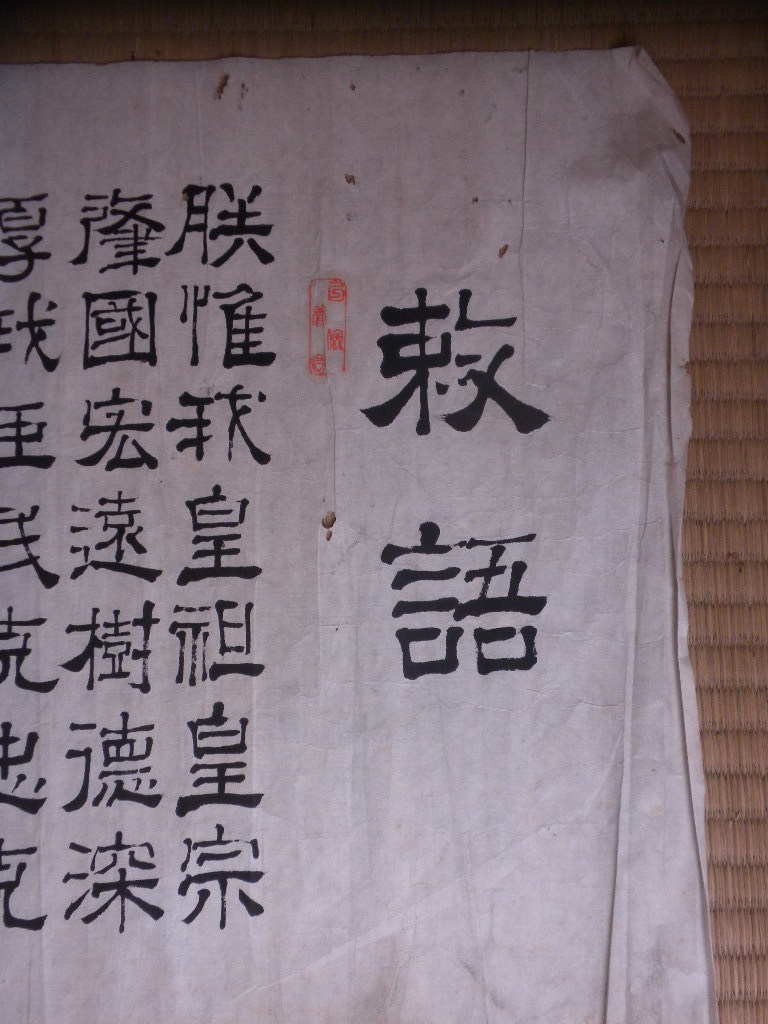 敕語
朕惟我皇祖皇宗
肇國宏遠樹德深
厚我臣民克忠克